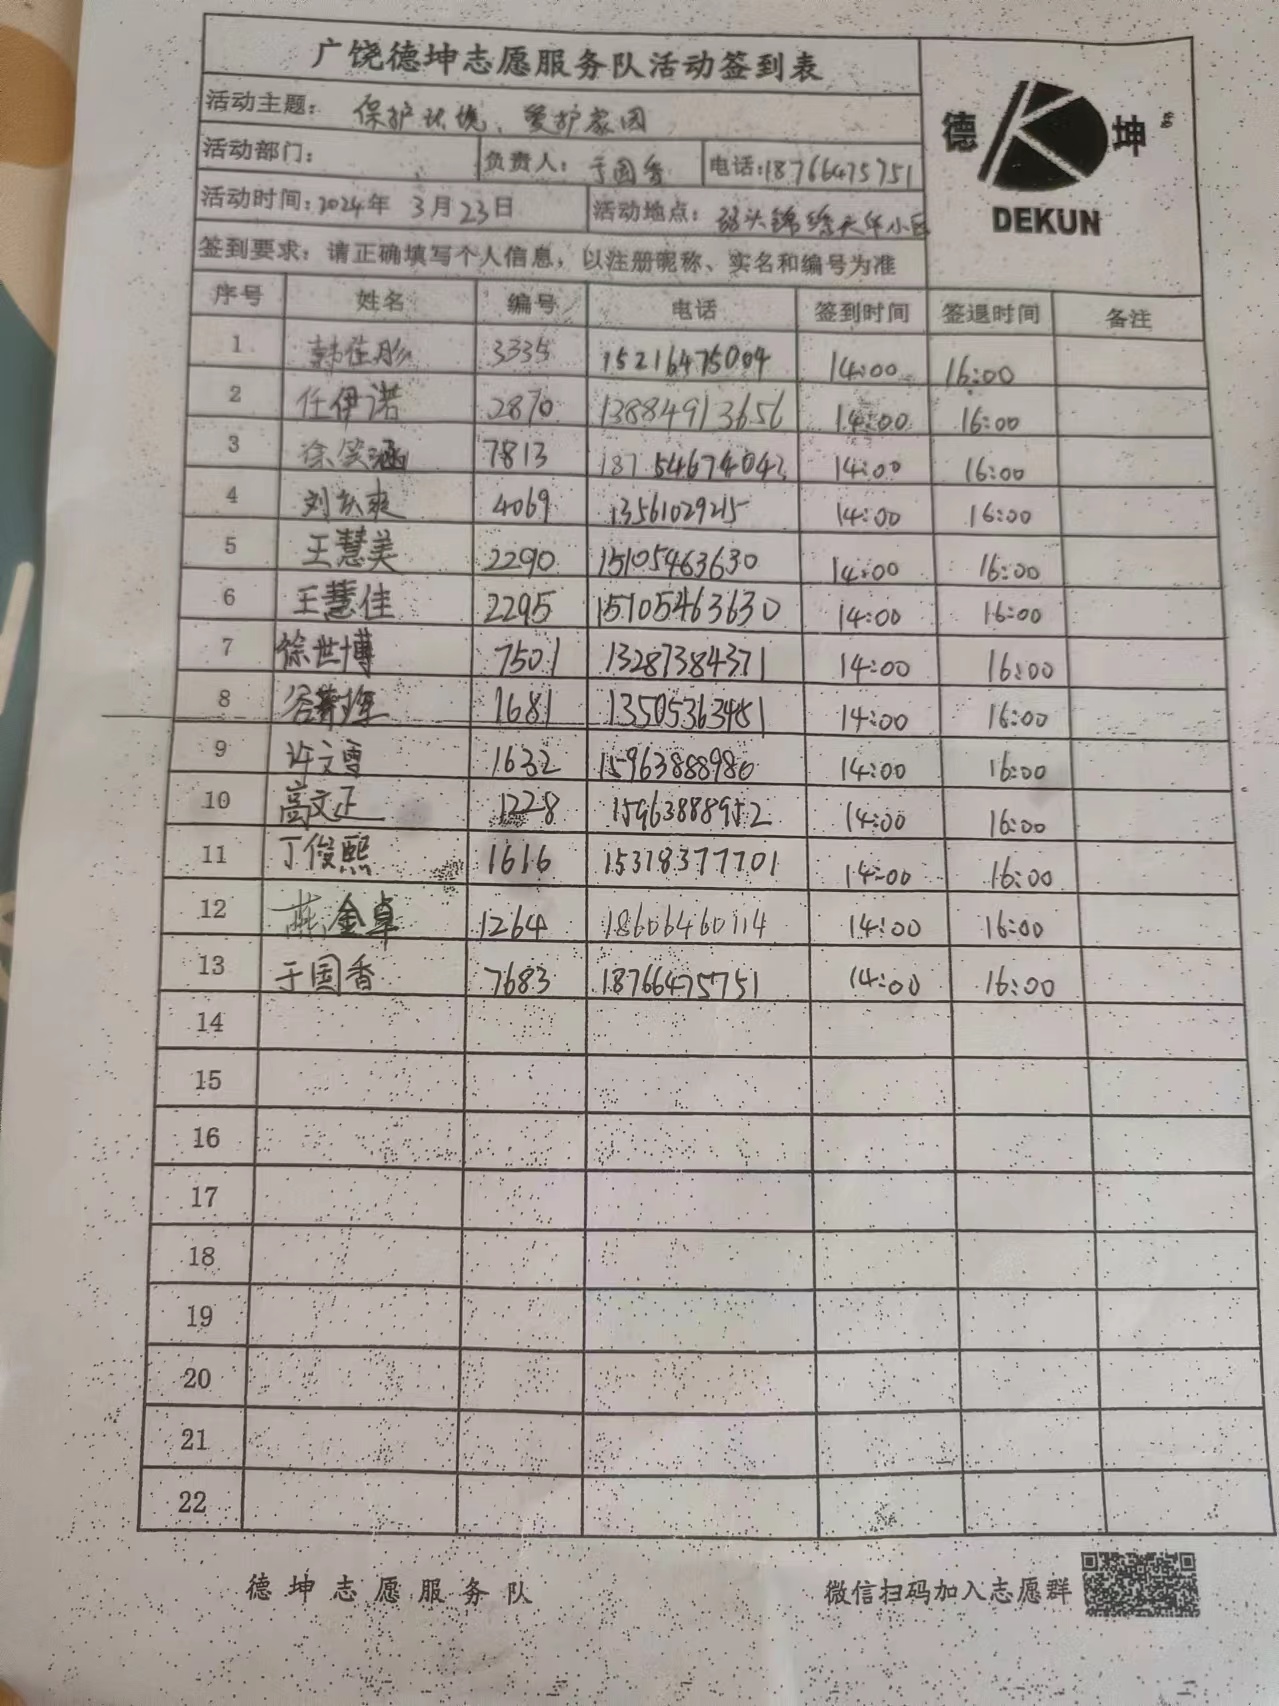 广饶德坤志愿服务队活动签到表
德 坤
DEKUN
活动主题: 保护环境、爱护家园
活动部门: 负责人: 于国香 电话:18766475751
活动时间:2024年 3月23日 活动地点: 锦绣天华小区
签到要求: 请正确填写个人信息, 以注册昵称、实名和编号为准
序号 姓名 编号 电话 签到时间 签退时间 备注
1 韩佳彤 3335 15216475009 14:00 16:00
2 任伊诺 2870 13884913656 14:00 16:00
3 徐笑涵 7813 18754674042 14:00 16:00
4 刘 爽 4069 13561029215 14:00 16:00
5 王慧美 2290 15105463630 14:00 16:00
6 王慧佳 2295 15105463630 14:00 16:00
7 徐世博 7501 13287384371 14:00 16:00
8 1681 13505363481 14:00 16:00
9 许文 1632 15963888980 14:00 16:00
10 高文正 1228 15963888952 14:00 16:00
11 丁俊熙 1616 15318377701 14:00 16:00
12 燕金卓 1264 18606460114 14:00 16:00
13 于国香 7683 18766475751 14:00 16:00
14
15
16
17
18
19
20
21
22
德坤志愿服务队 微信扫码加入志愿群